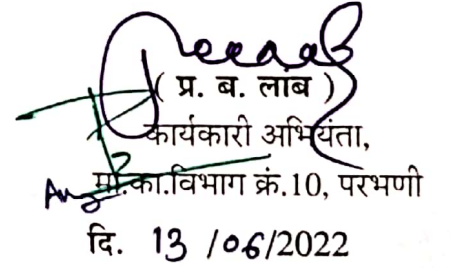 ( प्र. ब. लांब )
कार्यकारी अभियंता,
मा.का.विभाग क्रं.10, परभणी
दि. 13 /06/2022